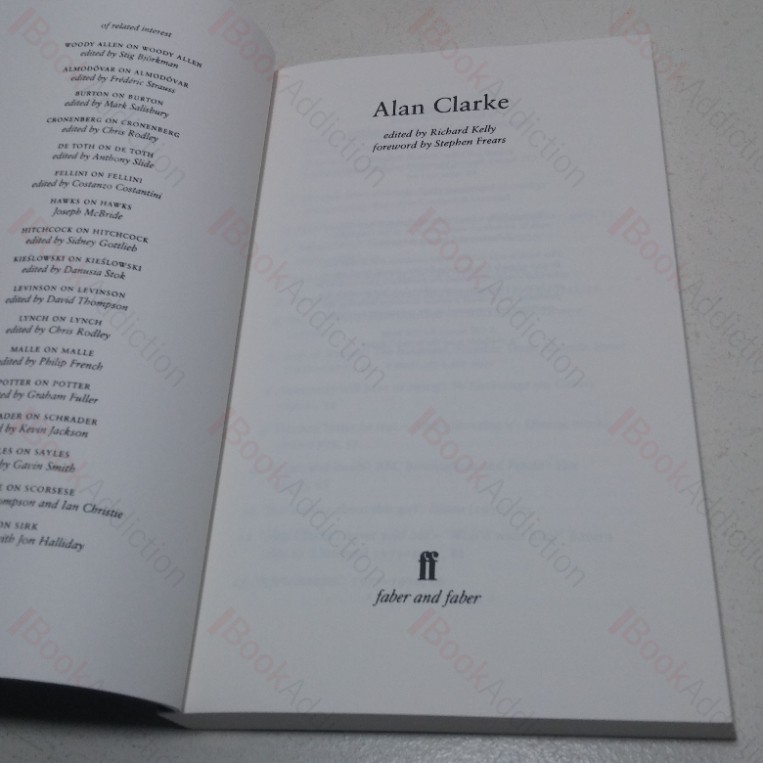 of related interest
WOODY ALLEN ON WOODY ALLEN
edited by Stig Björkman
ALMODÓVAR ON ALMODÓVAR
edited by Frédéric Strauss
BURTON ON BURTON
edited by Mark Salisbury
CRONENBERG ON CRONENBERG
edited by Chris Rodley
DE TOTH ON DE TOTH
edited by Anthony Slide
FELLINI ON FELLINI
edited by Costanzo Costantini
HAWKS ON HAWKS
Joseph McBride
HITCHCOCK ON HITCHCOCK
edited by Sidney Gottlieb
KIEŚLOWSKI ON KIEŚLOWSKI
edited by Danusia Stok
LEVINSON ON LEVINSON
edited by David Thompson
LYNCH ON LYNCH
edited by Chris Rodley
MALLE ON MALLE
edited by Philip French
POTTER ON POTTER
ed by Graham Fuller
ADER ON SCHRADER
d by Kevin Jackson
LES ON SAYLES
by Gavin Smith
E ON SCORSESE
mpson and Ian Christie
ON SIRK
with Jon Halliday
Alan Clarke
edited by Richard Kelly
foreword by Stephen Frears
ff
faber and faber
BookAddiction